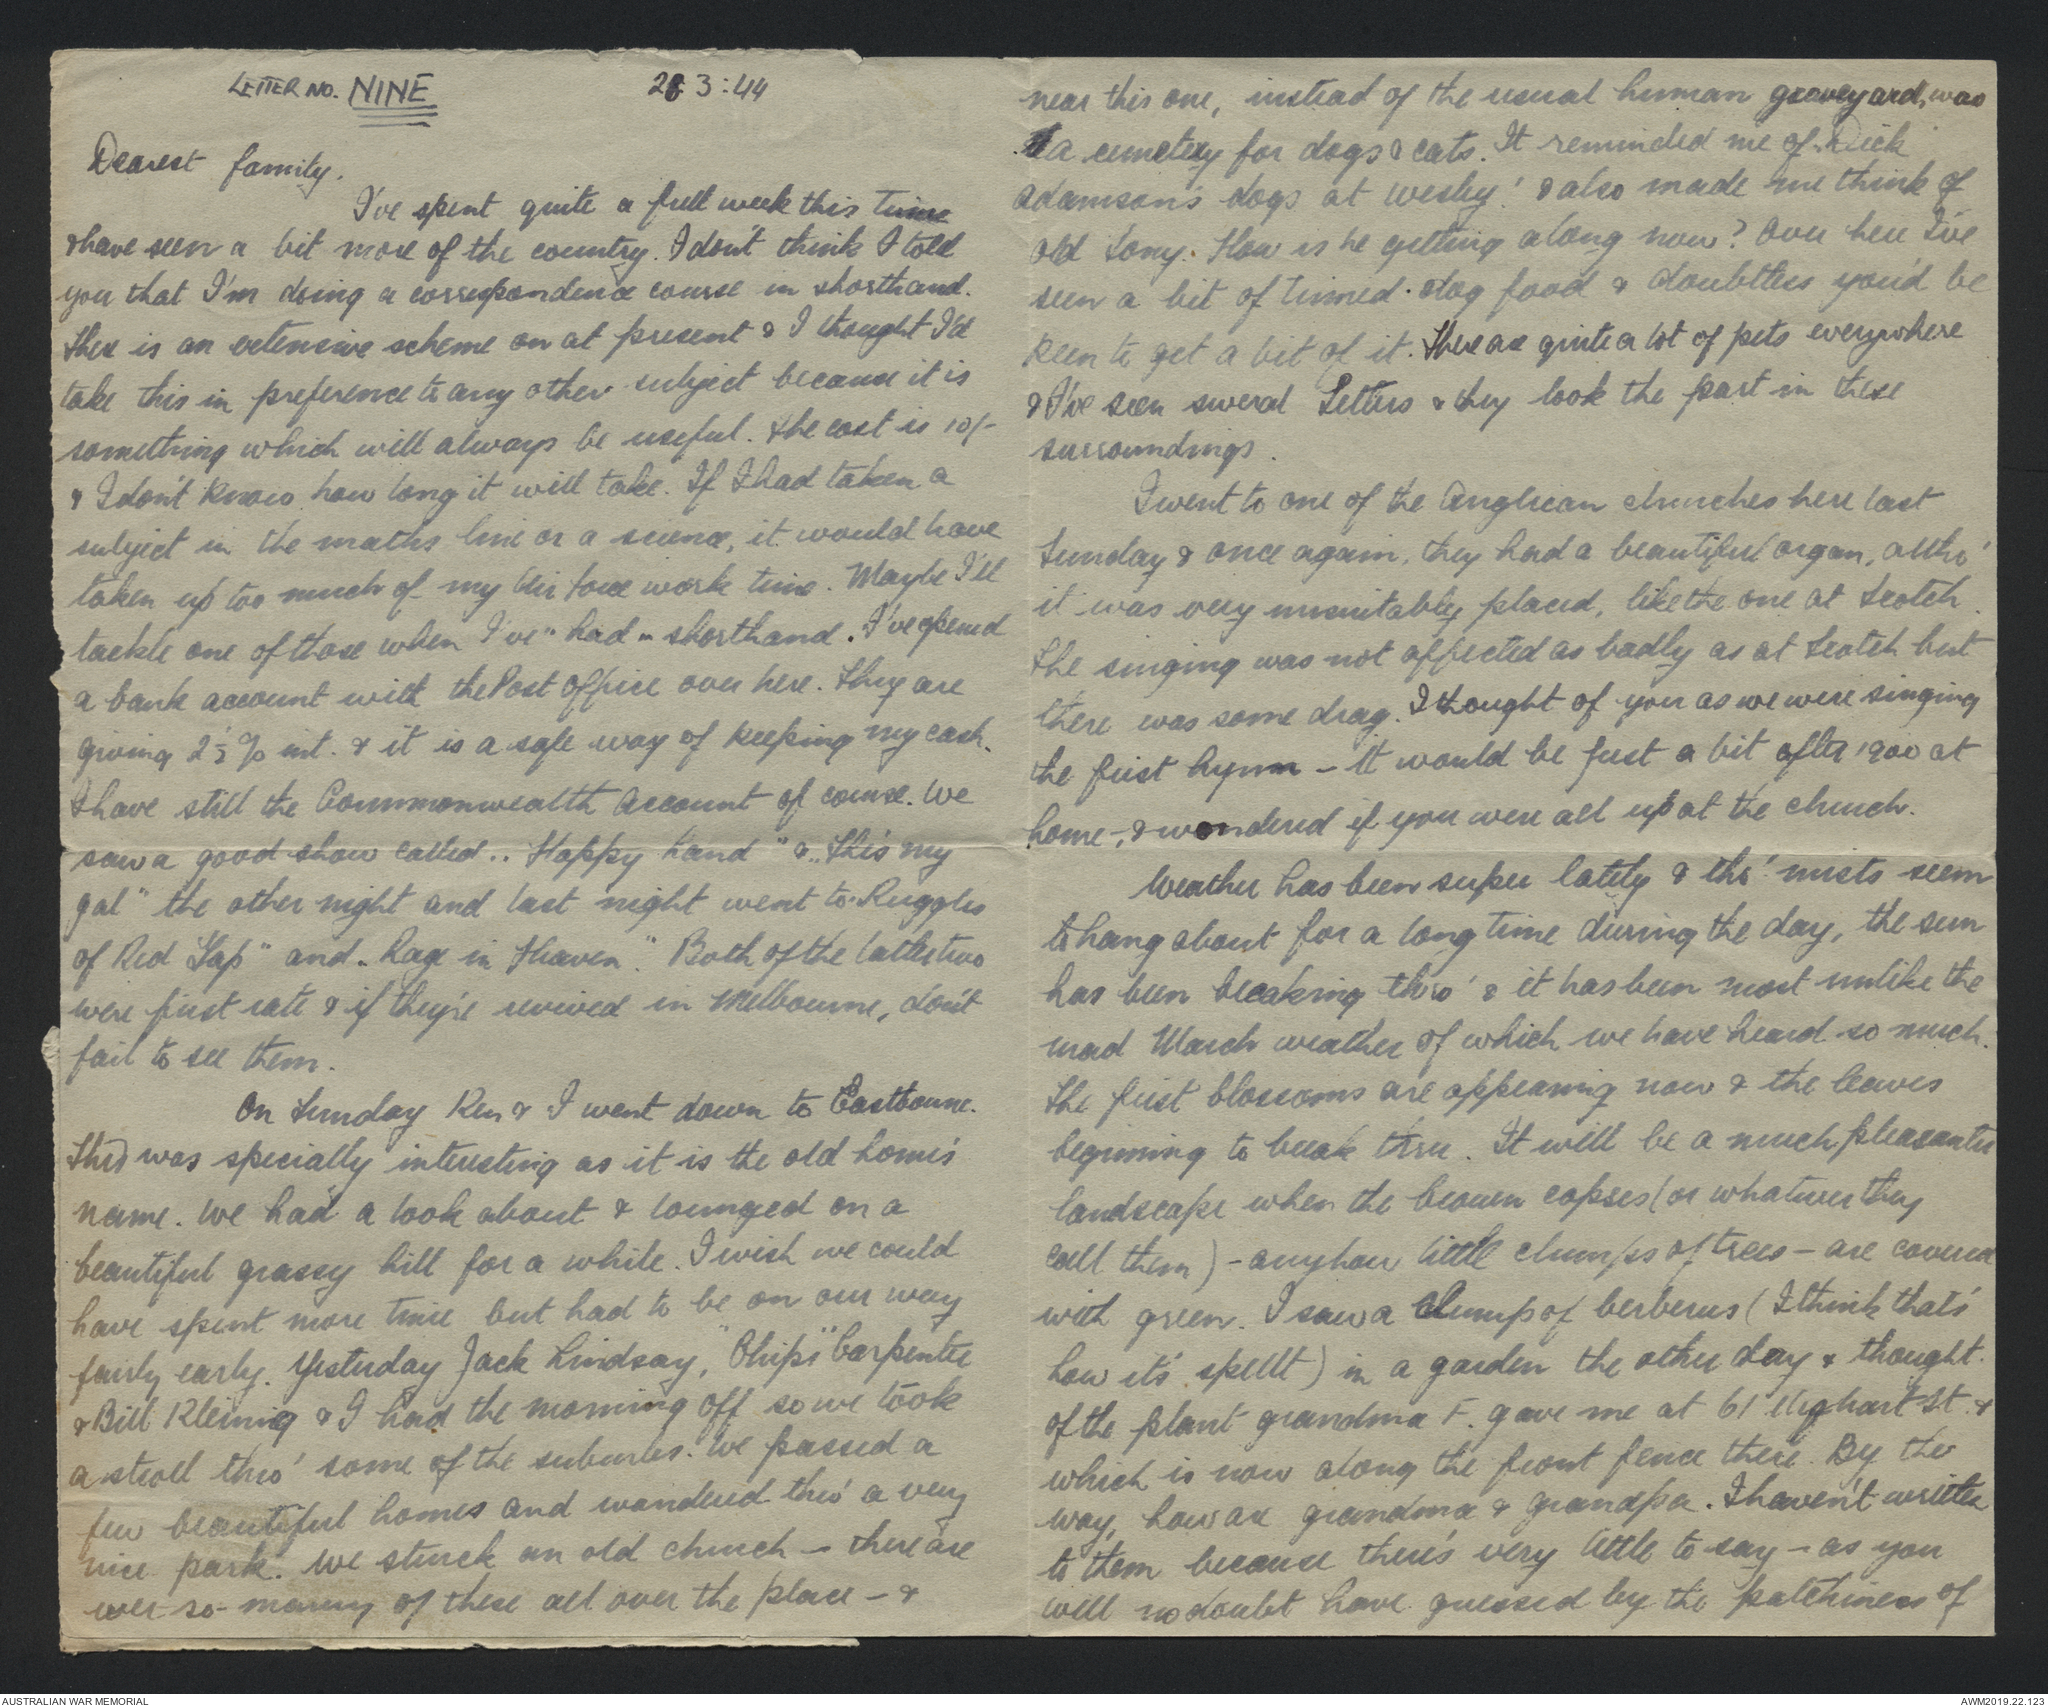 LETTER NO. NINE
28 3:44
Dearest family.
I've spent quite a full week this time
& have seen a bit more of the country. I don't think I told
you that I'm doing a correspondence course in shorthand.
There is an extensive scheme on at present & I thought I'd
take this in preference to any other subject because it is
something which will always be useful. The cost is 10/-
& I don't know how long it will take. If I had taken a
subject in the maths line or a science, it would have
taken up too much of my Air Force work time. Maybe I'll
tackle one of those when I've "had" shorthand. I've opened
a bank account with the Post Office over here. They are
giving 2½% int. & it is a safe way of keeping my cash.
I have still the Commonwealth Account of course. We
saw a good show called "Happy Land" & "This my
gal" the other night and last night went to "Ruggles
of Red Gap" and "Rage in Heaven". Both of the latter two
were first rate & if they're revived in Melbourne, don't
fail to see them.
On Sunday Ken & I went down to Eastbourne.
This was specially interesting as it is the old home's
name. We had a look about & lounged on a
beautiful grassy hill for a while. I wish we could
have spent more time but had to be on our way
fairly early. Yesterday Jack Lindsay, "Chips" Carpenter
& Bill Kleinig & I had the morning off so we took
a stroll thro' some of the suburbs. We passed a
few beautiful homes and wandered thro' a very
nice park. We struck an old church - there are
ever so many of these all over the place - &
near this one, instead of the usual human graveyard, was
a cemetery for dogs & cats. It reminded me of Dick
Adamson's dogs at Wesley! & also made me think of
old Tony. How is he getting along now? Over here I've
seen a bit of tinned dog food & doubtless you'd be
keen to get a bit of it. There are quite a lot of pets everywhere
& I've seen several Setters & they look the part in these
surroundings.
I went to one of the Anglican churches here last
Sunday & once again, they had a beautiful organ, altho'
it was very unsuitably placed, like the one at Scotch.
The singing was not affected as badly as at Scotch but
there was some drag. I thought of you as we were singing
the first hymn - It would be just a bit after 1900 at
home -, & wondered if you were all up at the church.
Weather has been super lately & tho' mists seem
to hang about for a long time during the day, the sun
has been breaking thro' & it has been most unlike the
mad March weather of which we have heard so much.
The first blossoms are appearing now & the leaves
beginning to break thru. It will be a much pleasanter
landscape when the brown copses (or whatever they
call them) - anyhow little clumps of trees - are covered
with green. I saw a clump of berberus (I think that's
how it's spellt) in a garden the other day & thought
of the plant grandma F. gave me at 61 St. &
which is now along the front fence there. By the
way, how are grandma & grandpa. I haven't written
to them because there's very little to say - as you
will no doubt have guessed by the patchiness of
AUSTRALIAN WAR MEMORIAL
AWM2019.22.123